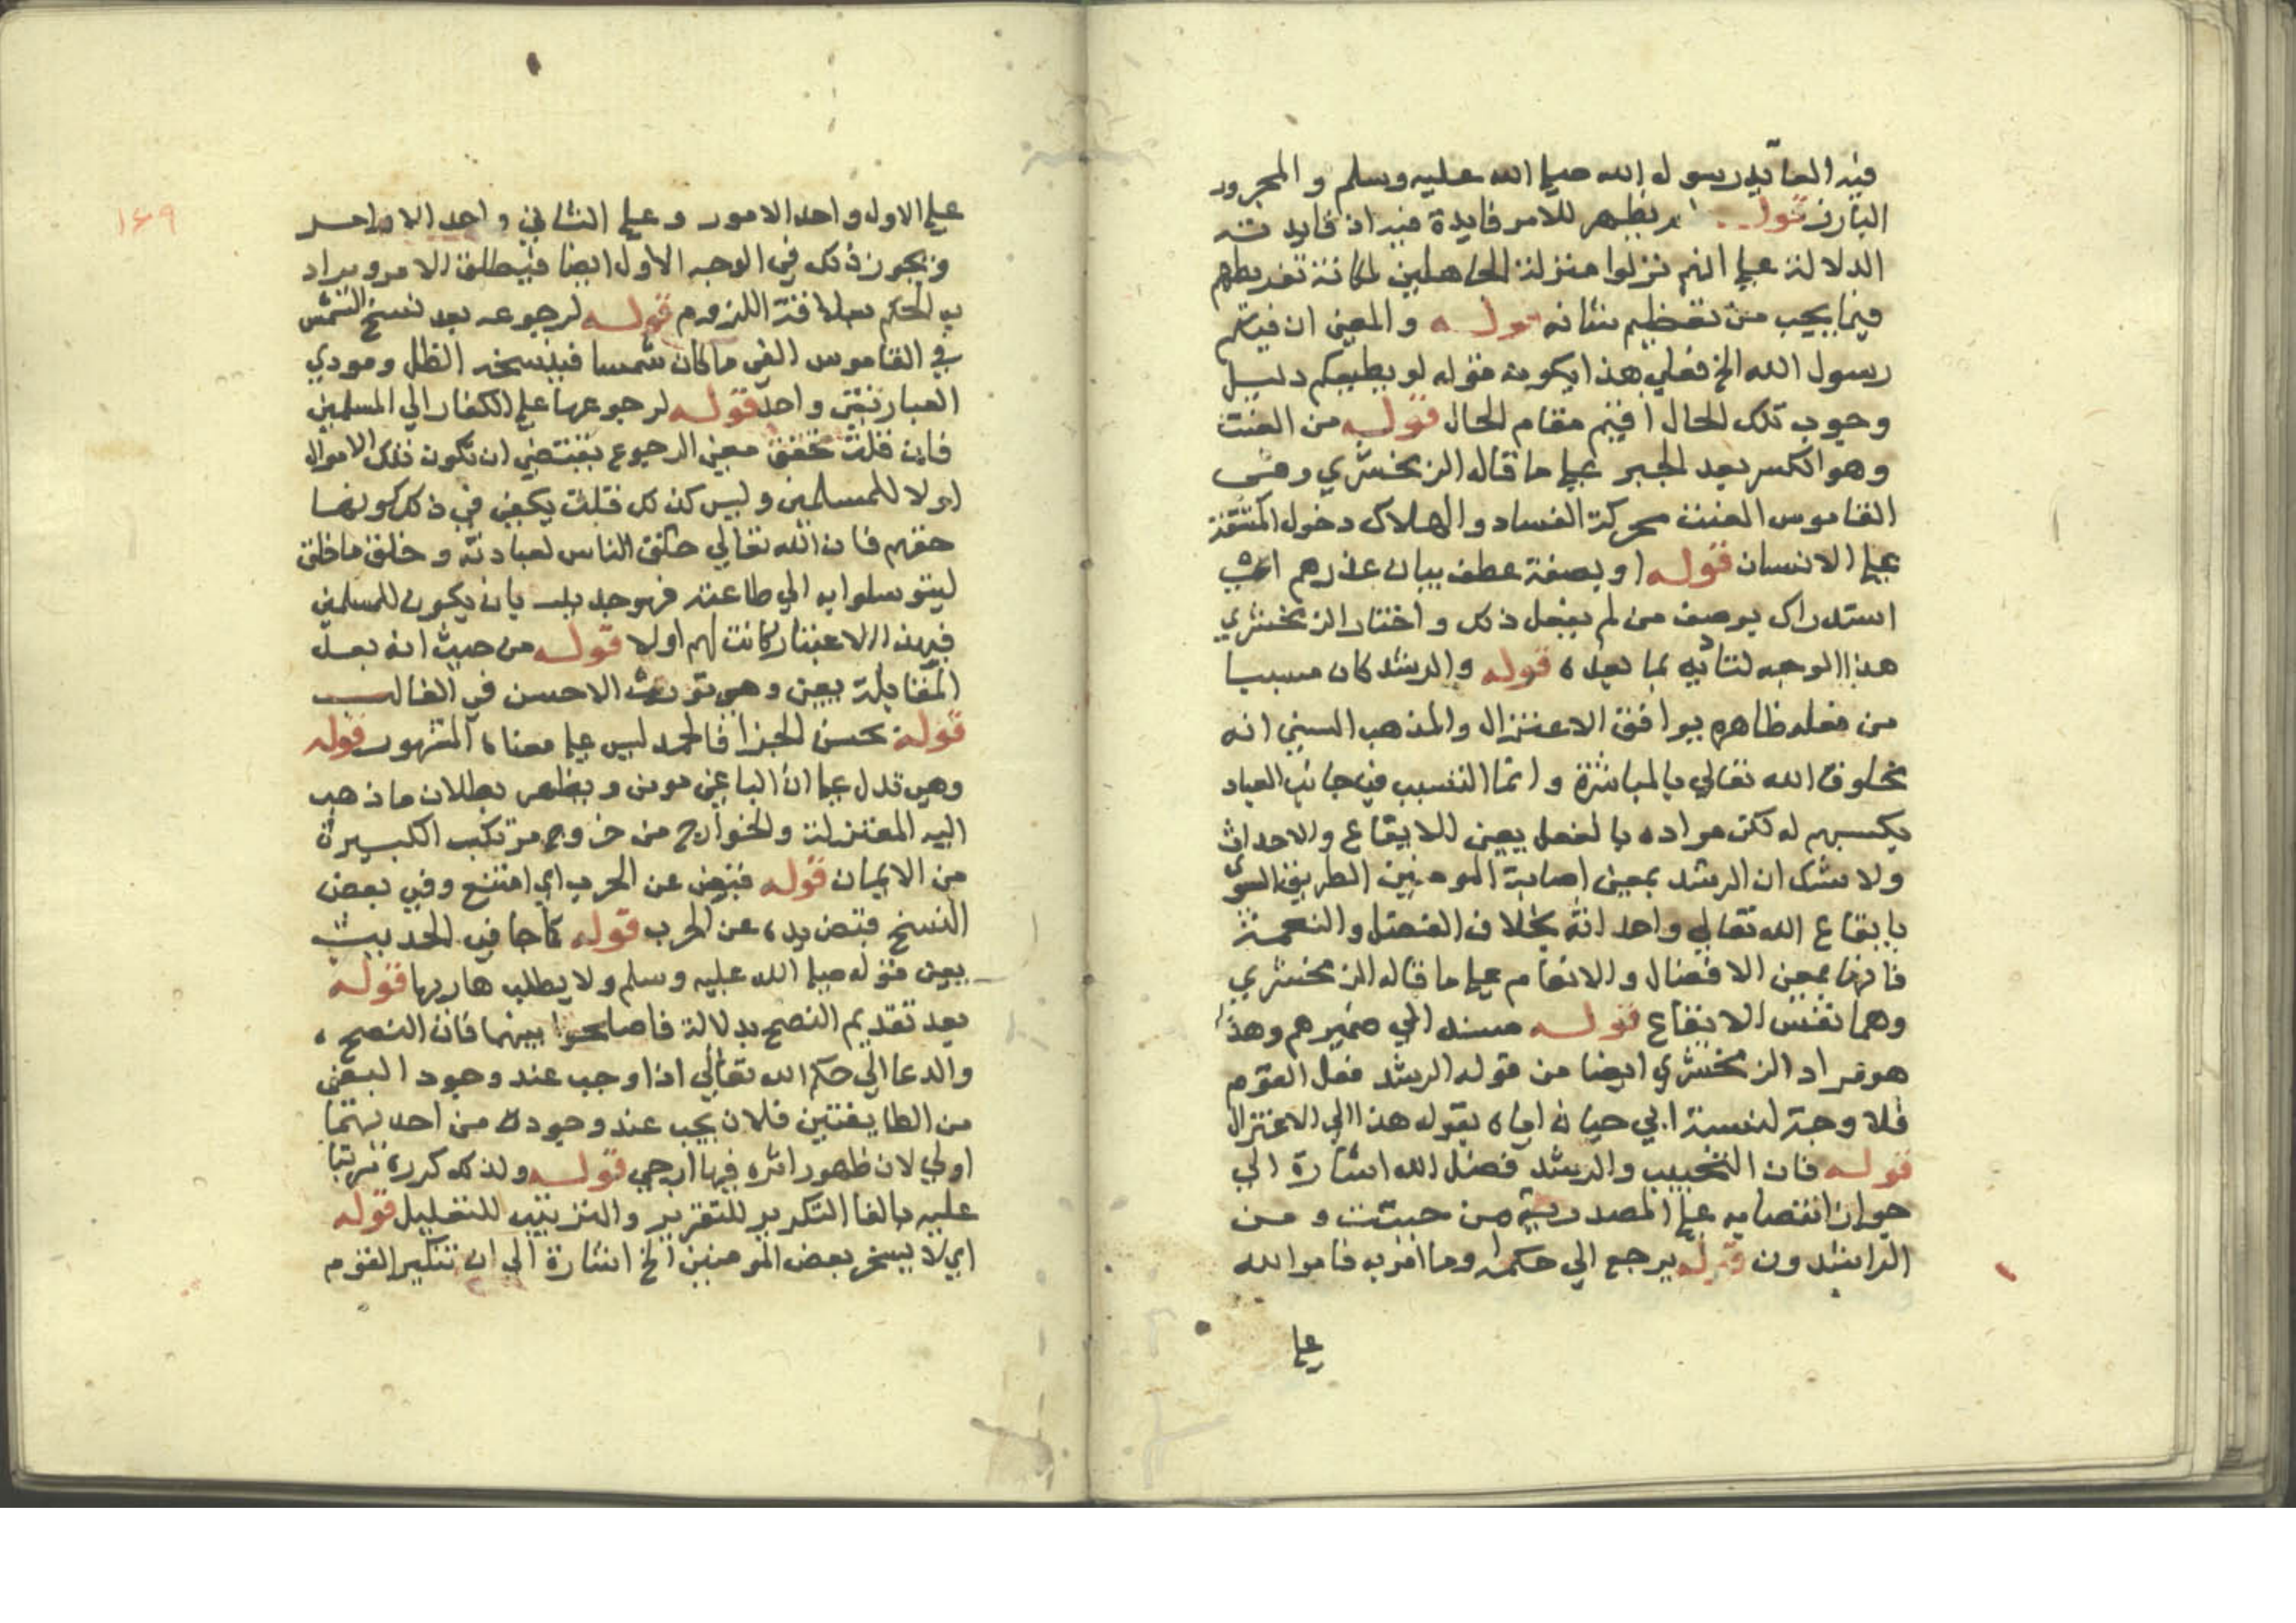 فيه العائد رسول الله صلى الله عليه وسلم والمجرور
البارز قوله لم يظهر للامر فايدة فيه اذ فايدته
الدلالة على انهم نزلوا منزلة الجاهلين لمكانة تفريطهم
فيما يجب من تعظيم شانه قوله والمعنى ان فيكم
رسول الله الخ فعلى هذا يكون قوله لو يطيعكم دليل
وجوب تلك الحال اقيم مقام الحال قوله من العنت
وهو الكسر بعد الجبر على ما قاله الزمخشري وفي
القاموس العنت محركة الفساد والهلاك دخول المشقة
على الانسان قوله او بصفة عطف ببيان عذرهم اي
استدراك بوصف من لم يفعل ذلك واختار الزمخشري
هذا الوجه لتائيه بما بعده قوله والرشد كان مسببا
من فعله ظاهره يوافق الاعتزال والمذهب السني انه
مخلوق الله تعالى بالمباشرة وانما التسبب في جانب العباد
بكسبهم له لكن مراده بالفعل يعني للايقاع والاحداث
ولا شك ان الرشد بمعنى اصابة المومنين الطريق السوي
بايقاع الله تعالى واحداثه بخلاف الفضل والنعمة
فانها بمعنى الافضال والانعام على ما قاله الزمخشري
وهما نفس الايقاع قوله مسند الي ضميرهم وهذا
هو مراد الزمخشري ايضا من قوله الرشد فعل القوم
فلا وجه لنسبة ابي حيان اياه بقوله هذا الي الاعتزال
قوله فان التحبيب والرشد فضل الله اشارة الي
جواز انتصابه على المصدرية من حبب ومن
الراشدون قوله يرجع الي حكمه وما امر به فامر الله
على
١٦٩
على الاول واحد الامور وعلى الثاني واحد الاوامر
ويجوز ذلك في الوجه الاول ايضا فيطلق الامر ويراد
به الحكم بعلاقة اللزوم قوله لرجوعه بعد نسخ الشمس
في القاموس الفي ما كان شمسا فينسخه الظل ومودي
العبارتين واحد قوله لرجوعها على الكفار الي المسلمين
فان قلت تحقق معنى الرجوع يقتضي ان تكون تلك الاموال
اولا للمسلمين وليس كذلك قلت يكفي في ذلك كونها
حقهم فان الله تعالى خلق الناس لعبادته وخلق ما خلق
ليتوسلوا به الي طاعته فهو جدير بان يكون للمسلمين
فبهذا الاعتبار كانت لهم اولا قوله من حيث انه بعد
المقاتلة يعني وهي تورث الاحسن في الغالب
قوله بحسن الجزا فالحمد ليس على معناه المشهور قوله
وهي تدل على ان الباغي مومن ويظهر بطلان ما ذهب
اليه المعتزلة والخوارج من خروج مرتكب الكبيرة
من الايمان قوله فيتقض عن الحرب اي امتنع وفي بعض
النسخ قبض يده عن الحرب قوله كما جا في الحديث
يعني قوله صلى الله عليه وسلم ولا يطلب هاربها قوله
بعد تقديم النصح بدلالة فاصلحوا بينهما فان النصح
والدعا الي حكم الله تعالى اذا وجب عند وجود البغي
من الطايفتين فلان يجب عند وجوده من احديهما
اولي لان ظهور اثره فيها ارجي قوله ولذلك كرره مرتبا
عليه بالفا التكرير للتقرير والترتيب للتعليل قوله
اي لا يسخر بعض المومنين الخ اشارة الي ان تنكير القوم